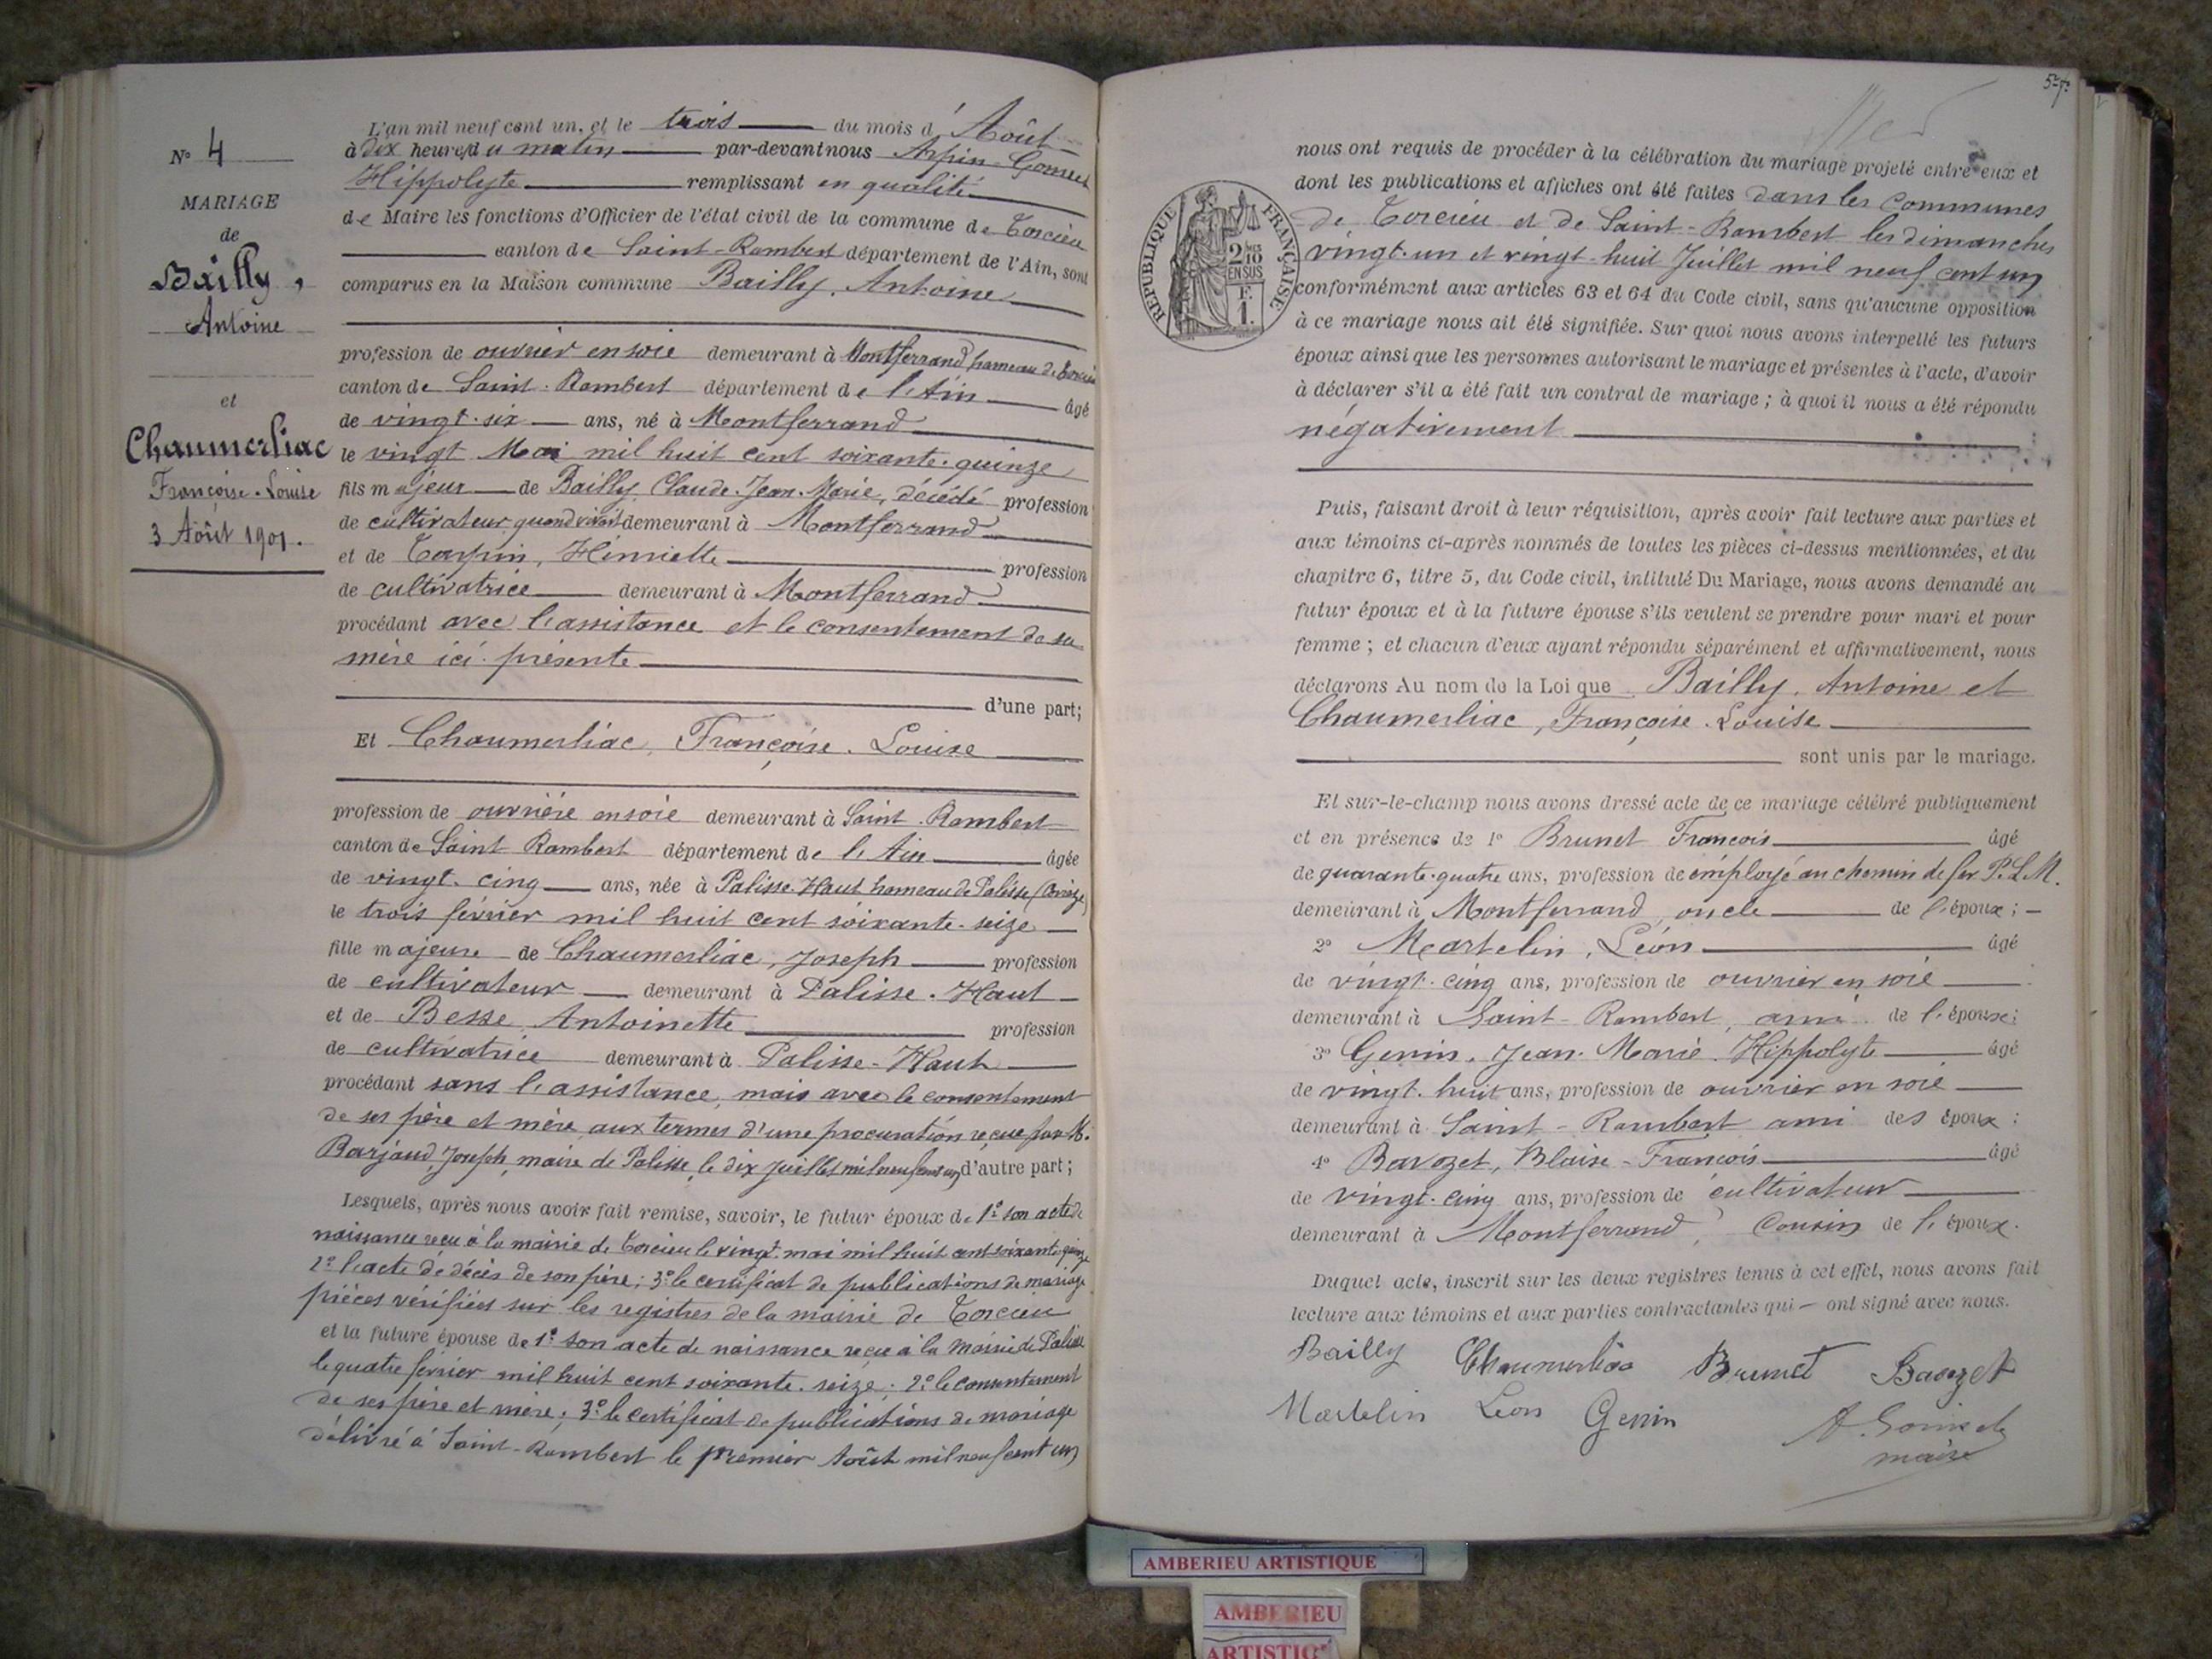 N° 4
MARIAGE
de
Bailly,
Antoine
et
Chaumerliac
Françoise-Louise
3 Août 1901.
L'an mil neuf cent un, et le trois du mois d'Août
à dix heures du matin par-devant nous Arpin-Gonnet
Hippolyte remplissant en qualité
de Maire les fonctions d'Officier de l'état civil de la commune de Torcieu
canton de Saint-Rambert département de l'Ain, sont
comparus en la Maison commune Bailly, Antoine
profession de ouvrier en soie demeurant à Montferrand, hameau de Torcieu
canton de Saint-Rambert département de l'Ain âgé
de vingt-six ans, né à Montferrand
le vingt Mai mil huit cent soixante-quinze
fils majeur de Bailly, Claude-Jean-Marie, décédé profession
de cultivateur quand vivait demeurant à Montferrand
et de Tarpin, Henriette profession
de cultivatrice demeurant à Montferrand
procédant avec l'assistance et le consentement de sa
mère ici présente
d'une part;
Et Chaumerliac, Françoise-Louise
profession de ouvrière en soie demeurant à Saint-Rambert
canton de Saint Rambert département de l'Ain âgée
de vingt-cinq ans, née à Palisse-Haut hameau de Palisse (Corrèze)
le trois février mil huit cent soixante-seize
fille majeure de Chaumerliac, Joseph profession
de cultivateur demeurant à Palisse-Haut
et de Besse Antoinette profession
de cultivatrice demeurant à Palisse-Haut
procédant sans l'assistance, mais avec le consentement
de ses père et mère aux termes d'une procuration reçue par M.
Barjaud, Joseph, maire de Palisse, le dix juillet mil neuf cent un d'autre part;
Lesquels, après nous avoir fait remise, savoir, le futur époux de 1° son acte de
naissance reçu à la mairie de Torcieu le vingt mai mil huit cent soixante-quinze
2° l'acte de décès de son père; 3° le certificat de publications de mariage
pièces vérifiées sur les registres de la mairie de Torcieu
et la future épouse de 1° son acte de naissance reçu à la mairie de Palisse
le quatre février mil huit cent soixante-seize; 2° le consentement
de ses père et mère; 3° le certificat de publications de mariage
délivré à Saint-Rambert le premier Août mil neuf cent un
57.
RÉPUBLIQUE FRANÇAISE
2/10
EN SUS
F.
1.
nous ont requis de procéder à la célébration du mariage projeté entre eux et
dont les publications et affiches ont été faites dans les communes
de Torcieu et de Saint-Rambert les dimanches
vingt-un et vingt-huit Juillet mil neuf cent un
conformément aux articles 63 et 64 du Code civil, sans qu'aucune opposition
à ce mariage nous ait été signifiée. Sur quoi nous avons interpellé les futurs
époux ainsi que les personnes autorisant le mariage et présentes à l'acte, d'avoir
à déclarer s'il a été fait un contrat de mariage; à quoi il nous a été répondu
négativement
Puis, faisant droit à leur réquisition, après avoir fait lecture aux parties et
aux témoins ci-après nommés de toutes les pièces ci-dessus mentionnées, et du
chapitre 6, titre 5, du Code civil, intitulé Du Mariage, nous avons demandé au
futur époux et à la future épouse s'ils veulent se prendre pour mari et pour
femme; et chacun d'eux ayant répondu séparément et affirmativement, nous
déclarons Au nom de la Loi que Bailly, Antoine et
Chaumerliac, Françoise-Louise
sont unis par le mariage.
Et sur-le-champ nous avons dressé acte de ce mariage célébré publiquement
et en présence de 1° Brunet François âgé
de quarante-quatre ans, profession de employé au chemin de fer P.L.M.
demeurant à Montferrand, oncle de l'époux;
2° Martelin, Léon âgé
de vingt-cinq ans, profession de ouvrier en soie
demeurant à Saint-Rambert, ami de l'épouse;
3° Genin, Jean-Marie-Hippolyte âgé
de vingt-huit ans, profession de ouvrier en soie
demeurant à Saint-Rambert ami des époux;
4° Bavozet, Blaise-François âgé
de vingt-cinq ans, profession de cultivateur
demeurant à Montferrand, cousin de l'époux.
Duquel acte, inscrit sur les deux registres tenus à cet effet, nous avons fait
lecture aux témoins et aux parties contractantes qui ont signé avec nous.
Bailly Chaumerliac Brunet Bavozet
Martelin Léon Genin A. Gonnet
maire
AMBERIEU ARTISTIQUE
AMBERIEU
ARTISTIQUE